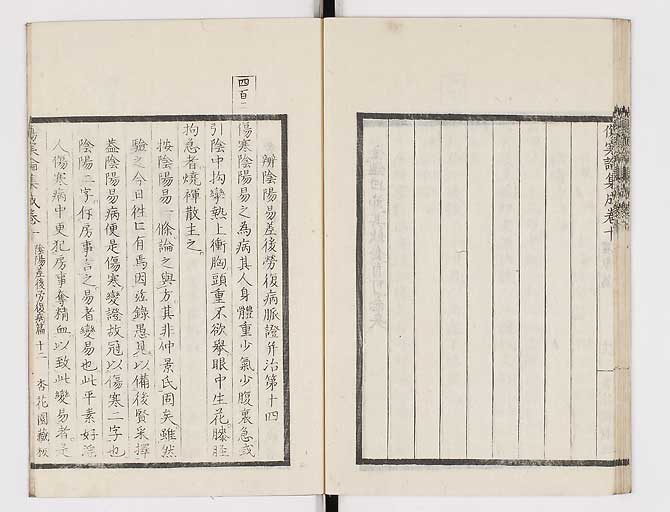 傷寒論集成卷十
四百二
辨陰陽易差後勞復病脈證并治第十四
傷寒陰陽易之為病其人身體重少氣少腹裏急或
引陰中拘攣熱上衝胸頭重不欲舉眼中生花膝脛
拘急者燒褌散主之
按陰陽易一條論之與方其非仲景氏固矣雖然
驗之今日往往有焉因茲錄愚見以備後賢采擇
蓋陰陽易病便是傷寒變證故冠以傷寒二字也
陰陽二字仔房事言之易者變易也此平素好淫
人傷寒病中更犯房事奪精血以致此變易者是
傷寒論集成卷十 陰陽差後勞復病篇 十二 杏花園藏板